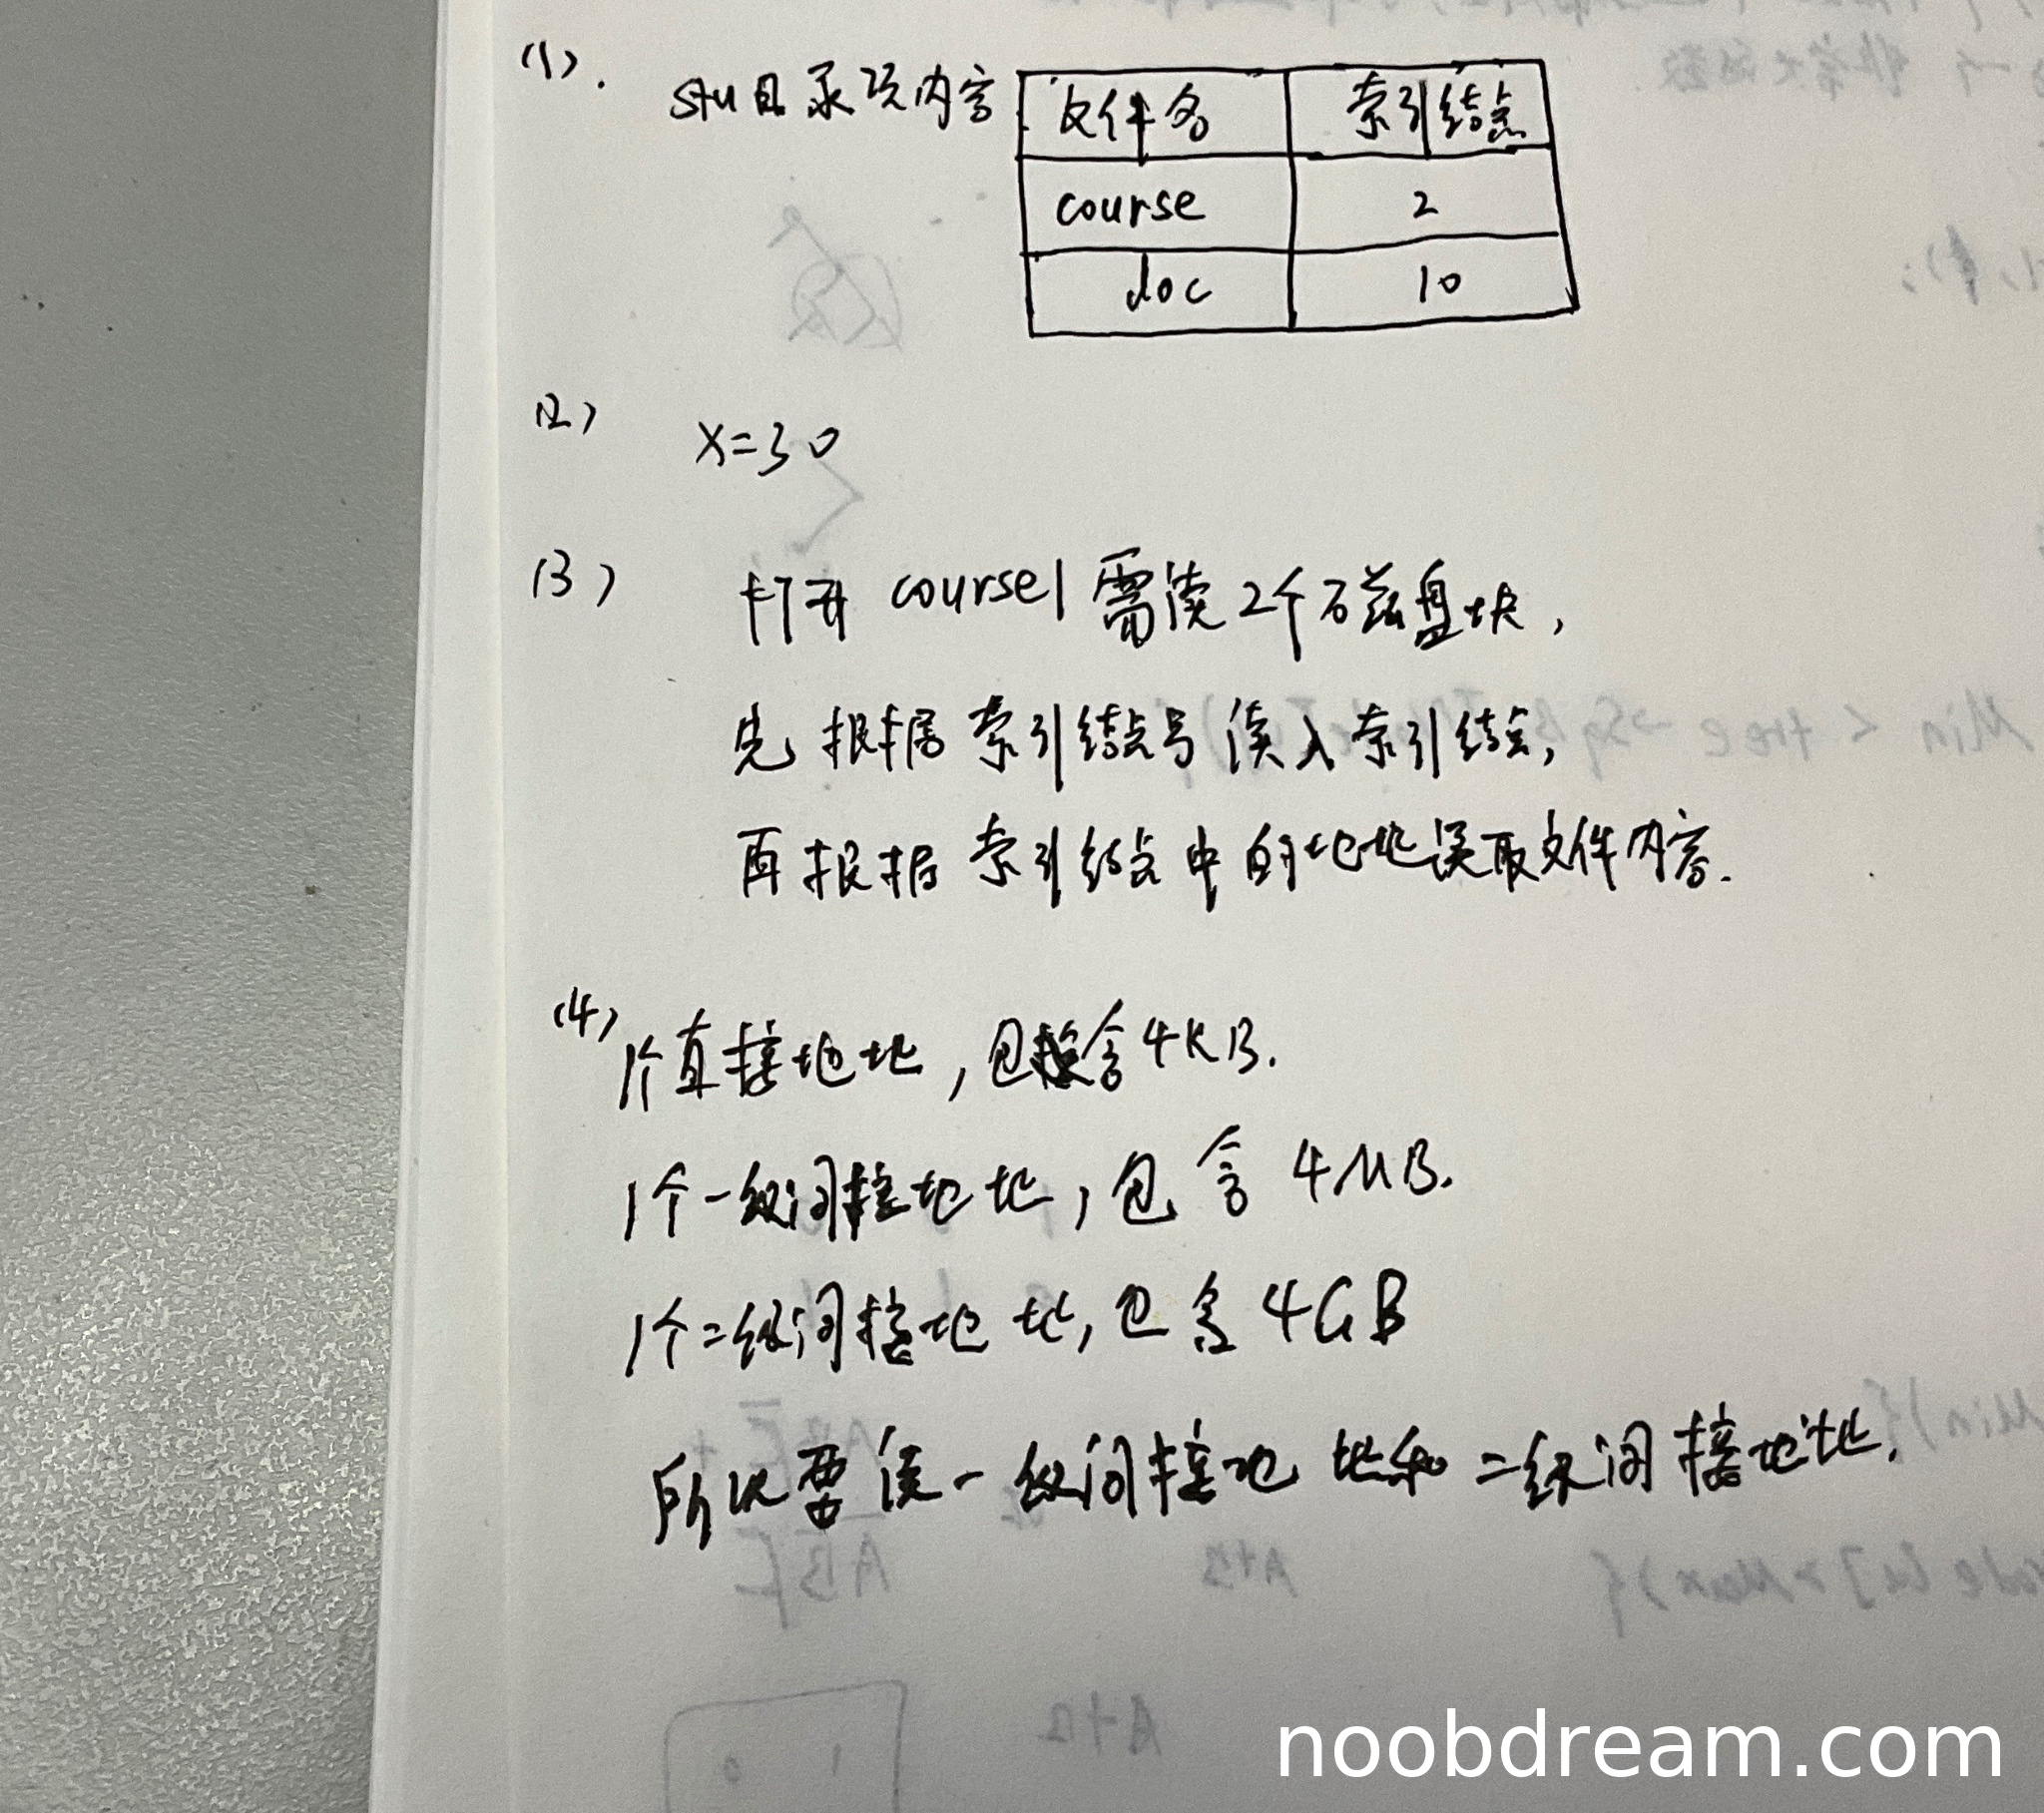 (1).
stu目录项内容
文件名 索引结点
course 2
doc 10
(2) x=30
(3) 打开 course1 需读2个磁盘块,
先根据索引结点号读入索引结点,
再根据索引结点中的地址读取文件内容.
(4) 1个直接地址,包含4KB.
1个一级间接地址,包含4MB.
1个二级间接地址,包含4GB
所以要读一级间接地址和二级间接地址.
noobdream.com